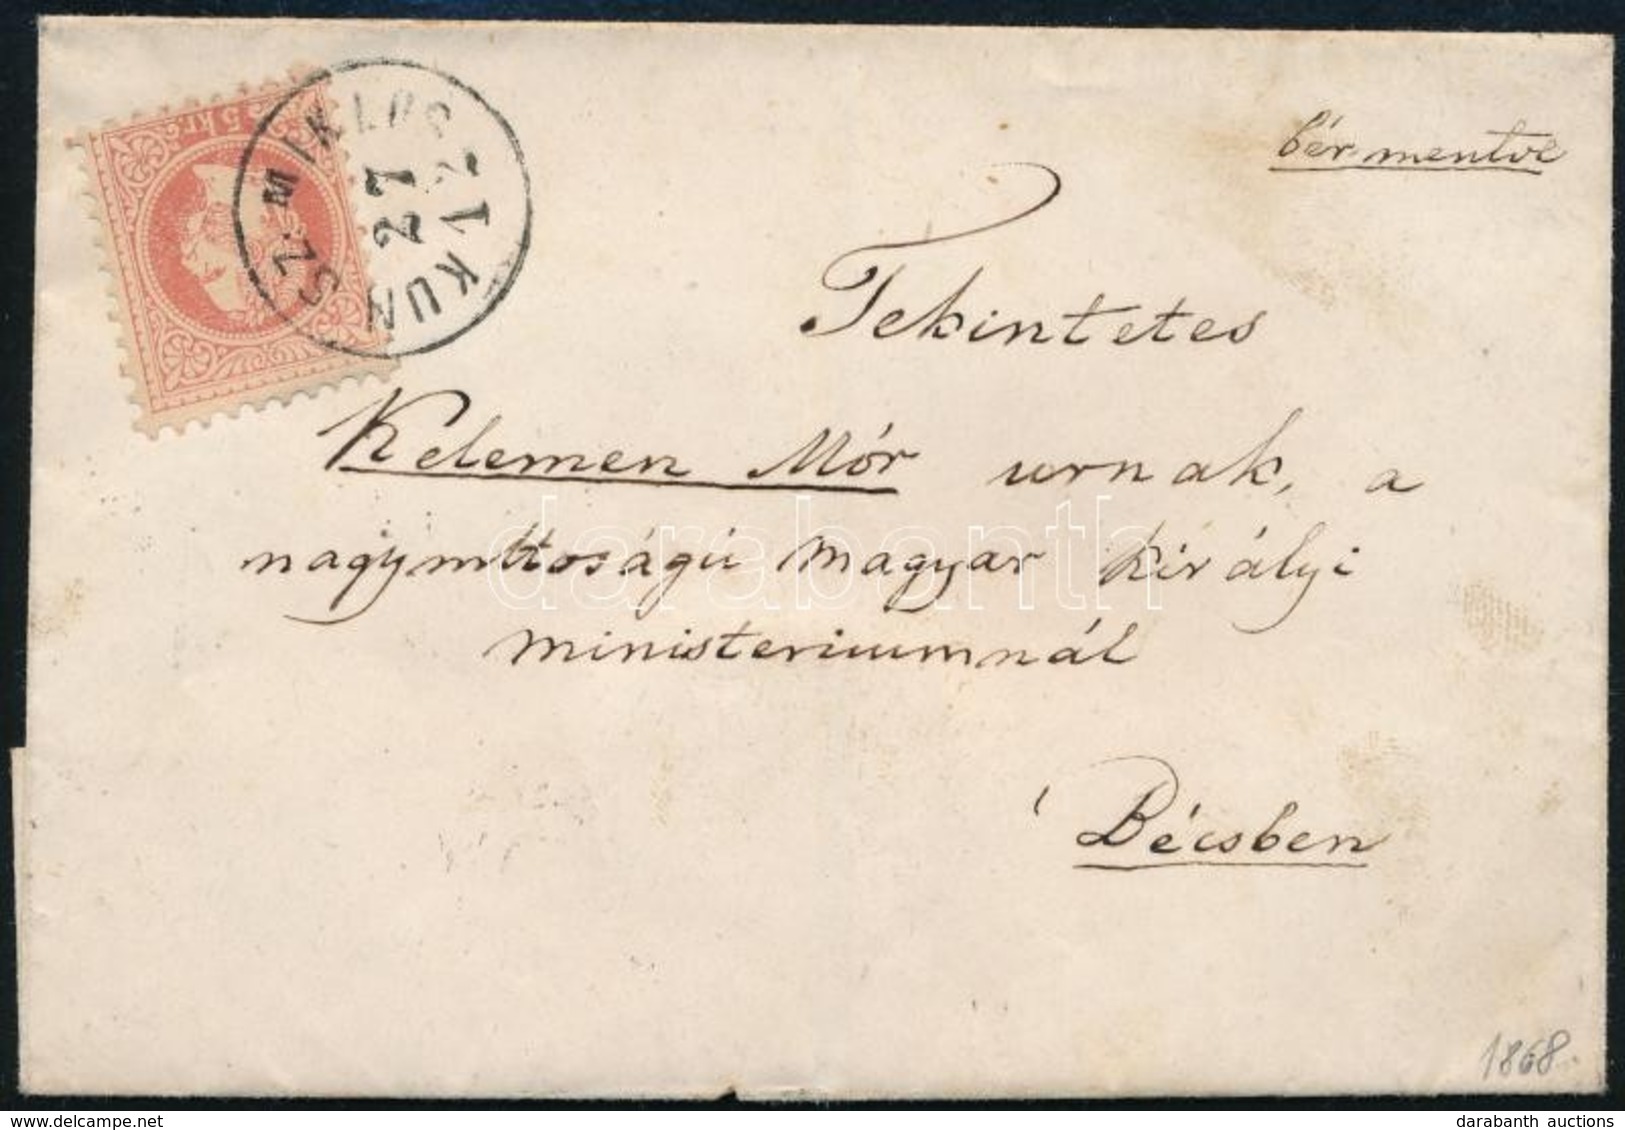 5 kr.
KUN SZ. MIKLOS
27
12
bérmentve
Tekintetes
Kelemen Mór urnak, a
nagymltoságú magyar királyi
ministeriumnál
Bécsben
1868.
darabanth
darabanth auctions